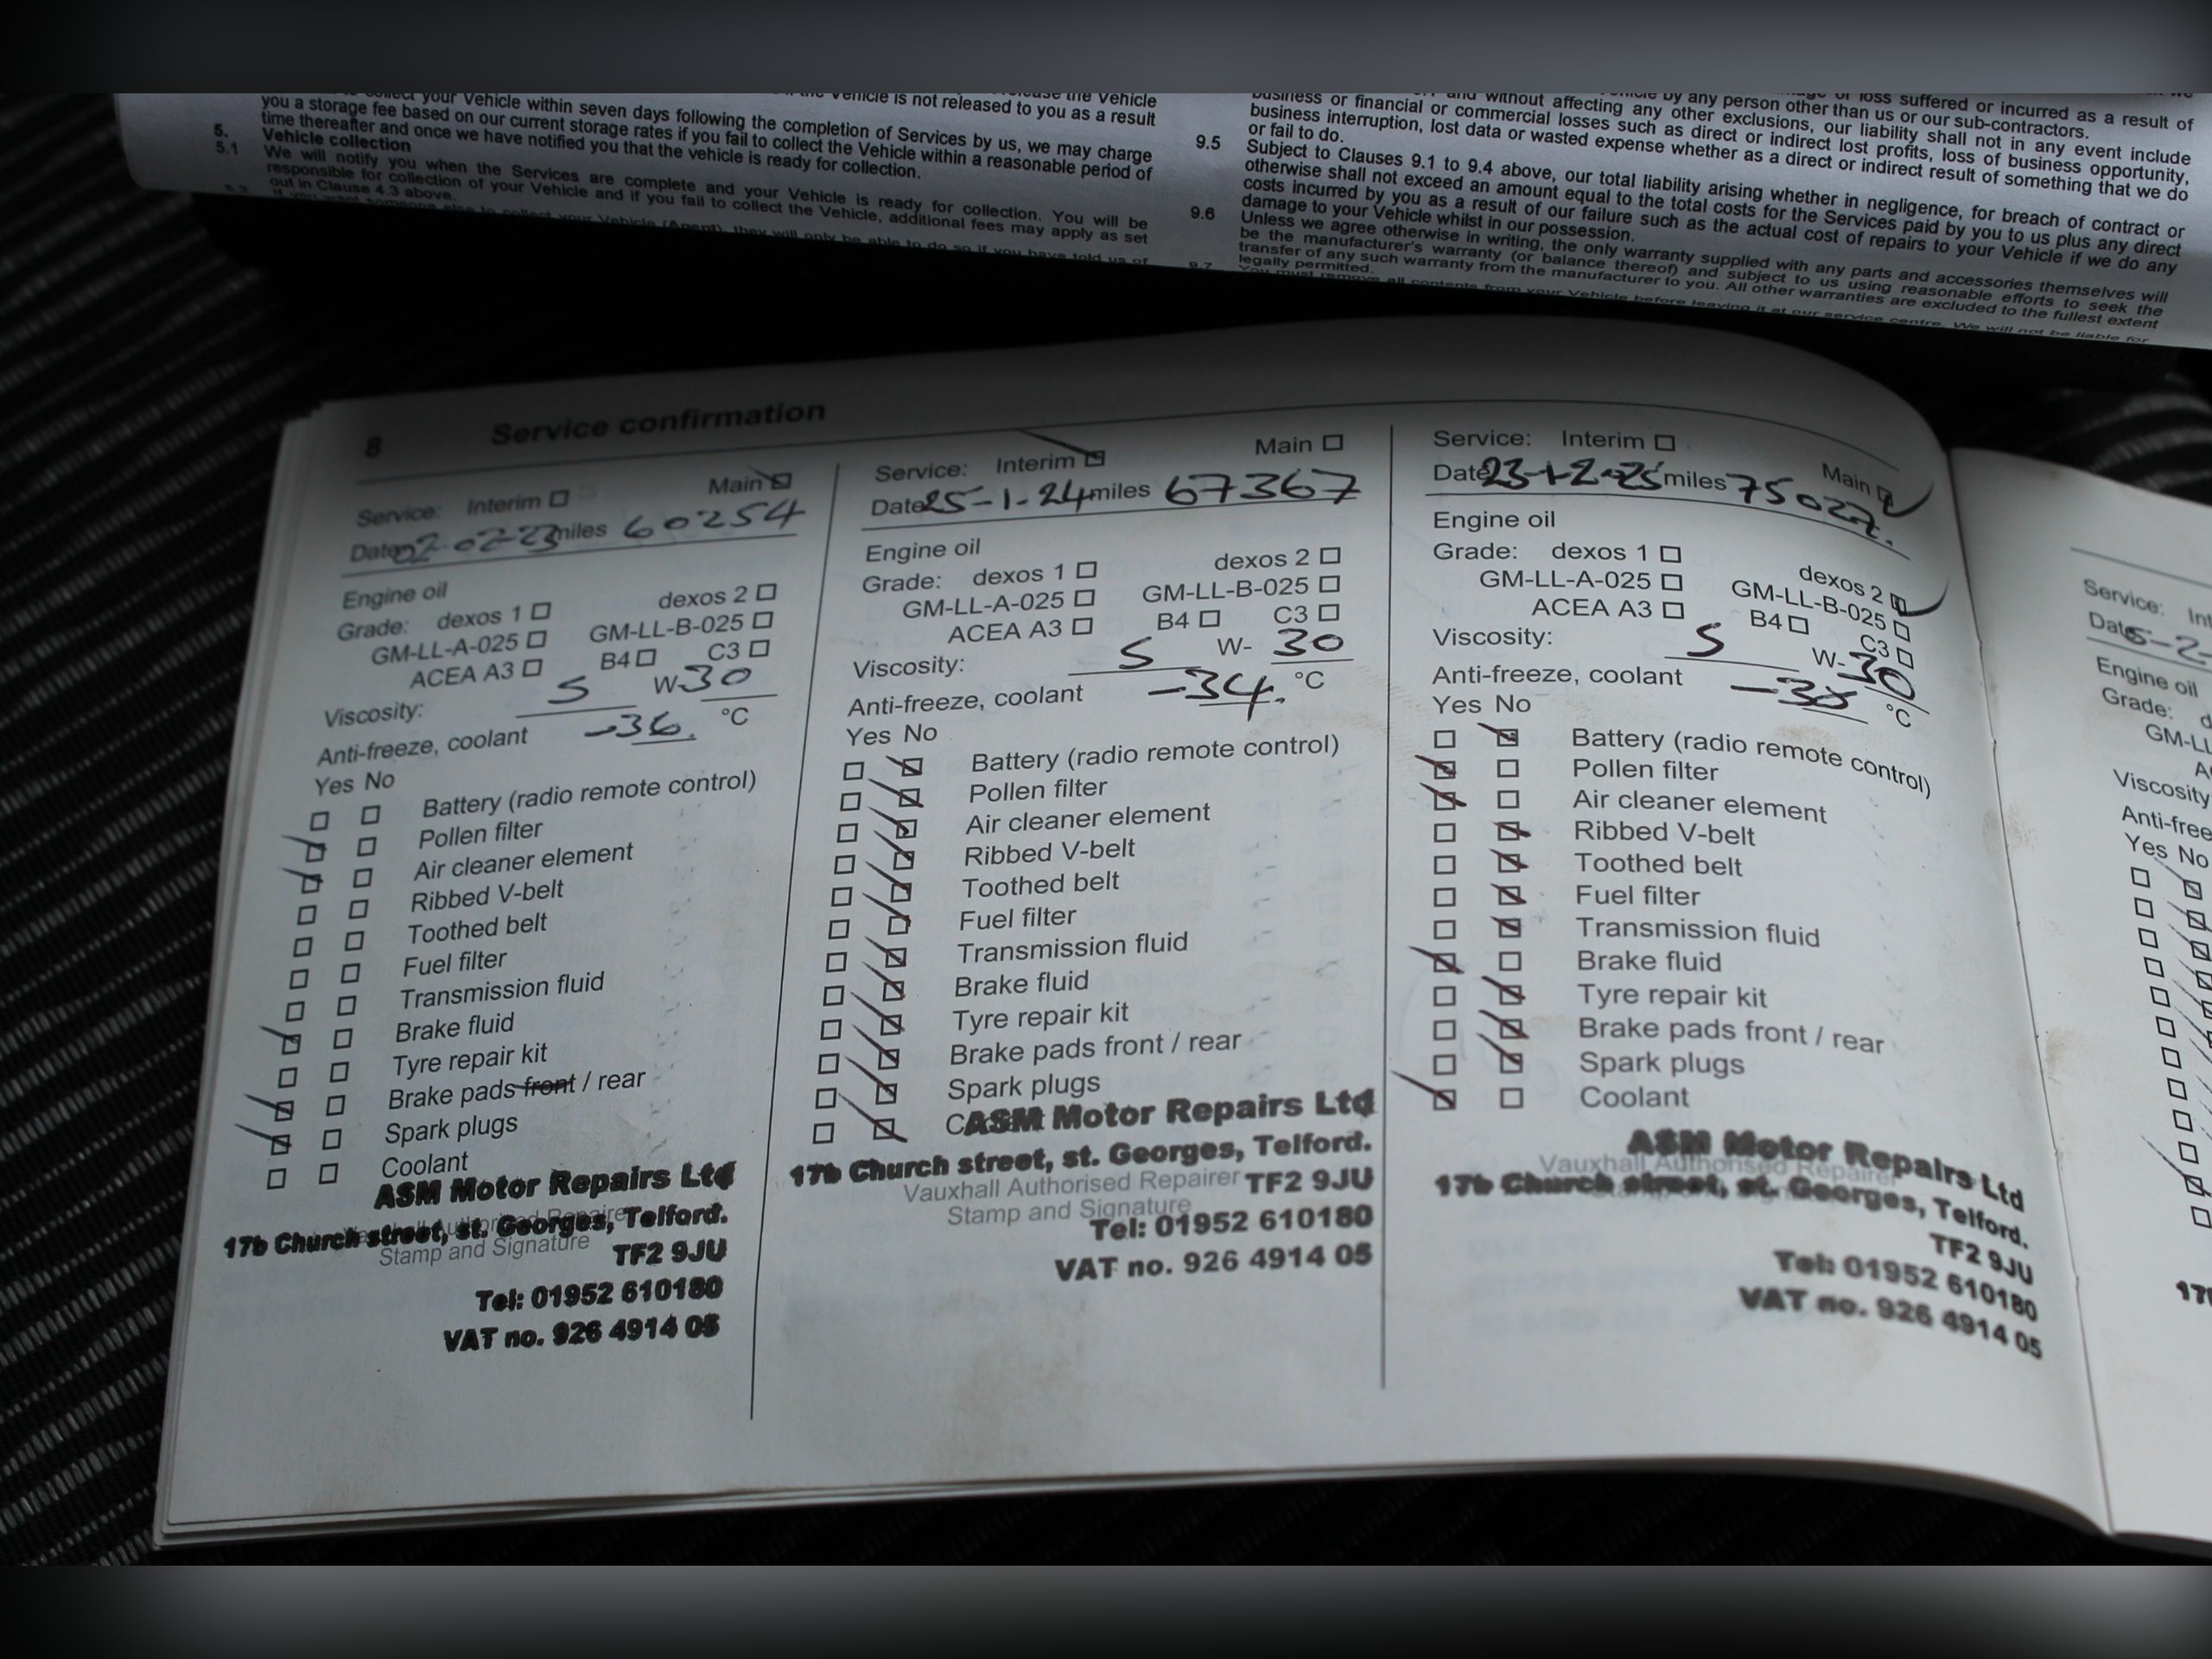 you a storage fee based on our current storage rates if you fail to collect the Vehicle within a reasonable period of
time thereafter and once we have notified you that the vehicle is ready for collection.
5. Vehicle collection
5.1 We will notify you when the Services are complete and your Vehicle is ready for collection. You will be
responsible for collection of your Vehicle and if you fail to collect the Vehicle, additional fees may apply as set
out in Clause 4.3 above.
business or financial or commercial losses such as direct or indirect lost profits, loss of business opportunity,
business interruption, lost data or wasted expense whether as a direct or indirect result of something that we do
or fail to do.
9.5 Subject to Clauses 9.1 to 9.4 above, our total liability arising whether in negligence, for breach of contract or
otherwise shall not exceed an amount equal to the total costs for the Services paid by you to us plus any direct
costs incurred by you as a result of our failure such as the actual cost of repairs to your Vehicle if we do any
damage to your Vehicle whilst in our possession.
9.6 Unless we agree otherwise in writing, the only warranty supplied with any parts and accessories themselves will
be the manufacturer's warranty (or balance thereof) and subject to us using reasonable efforts to seek the
transfer of any such warranty from the manufacturer to you. All other warranties are excluded to the fullest extent
legally permitted.
9.7 You must remove all contents from your Vehicle before leaving it at our service centre. We will not be liable for
8 Service confirmation
Service: Interim Main
Date 02-02-23 miles 60254
Engine oil
Grade: dexos 1 dexos 2
GM-LL-A-025 GM-LL-B-025
ACEA A3 B4 C3
Viscosity: 5 W-30
Anti-freeze, coolant -36. °C
Yes No
Battery (radio remote control)
Pollen filter
Air cleaner element
Ribbed V-belt
Toothed belt
Fuel filter
Transmission fluid
Brake fluid
Tyre repair kit
Brake pads front / rear
Spark plugs
Coolant
ASM Motor Repairs Ltd
17b Church street, st. Georges, Telford.
Stamp and Signature
TF2 9JU
Tel: 01952 610180
VAT no. 926 4914 05
Service: Interim Main
Date 25-1-24 miles 67367
Engine oil
Grade: dexos 1 dexos 2
GM-LL-A-025 GM-LL-B-025
ACEA A3 B4 C3
Viscosity: 5 W- 30
Anti-freeze, coolant -34. °C
Yes No
Battery (radio remote control)
Pollen filter
Air cleaner element
Ribbed V-belt
Toothed belt
Fuel filter
Transmission fluid
Brake fluid
Tyre repair kit
Brake pads front / rear
Spark plugs
ASM Motor Repairs Ltd
17b Church street, st. Georges, Telford.
Vauxhall Authorised Repairer TF2 9JU
Stamp and Signature
Tel: 01952 610180
VAT no. 926 4914 05
Service: Interim Main
Date miles 75027.
Engine oil
Grade: dexos 1 dexos 2
GM-LL-A-025 GM-LL-B-025
ACEA A3 B4 C3
Viscosity: 5 W-30
Anti-freeze, coolant °C
Yes No
Battery (radio remote control)
Pollen filter
Air cleaner element
Ribbed V-belt
Toothed belt
Fuel filter
Transmission fluid
Brake fluid
Tyre repair kit
Brake pads front / rear
Spark plugs
Coolant
ASM Motor Repairs Ltd
Vauxhall Authorised Repairer
17b Church street, st. Georges, Telford.
TF2 9JU
Tel: 01952 610180
VAT no. 926 4914 05
Service:
Engine oil
Grade:
Viscosity
Yes No